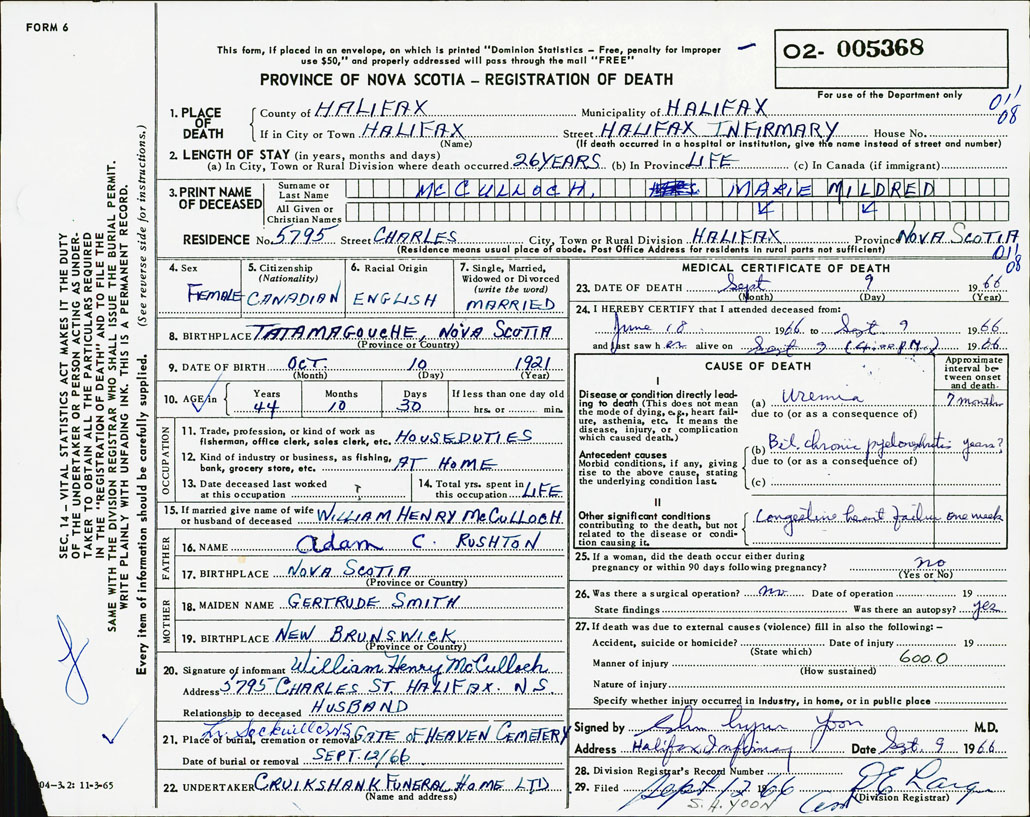 FORM 6
This form, if placed in an envelope, on which is printed "Dominion Statistics – Free, penalty for improper
use $50," and properly addressed will pass through the mail "FREE"
PROVINCE OF NOVA SCOTIA – REGISTRATION OF DEATH
02- 005368
For use of the Department only
011
08
1. PLACE OF DEATH
County of HALIFAX Municipality of HALIFAX
If in City or Town HALIFAX Street HALIFAX INFIRMARY House No.
(Name) (If death occurred in a hospital or institution, give the name instead of street and number)
2. LENGTH OF STAY (in years, months and days)
(a) In City, Town or Rural Division where death occurred 26 YEARS (b) In Province LIFE (c) In Canada (if immigrant)
3. PRINT NAME OF DECEASED
Surname or Last Name McCULLOCH, MARIE MILDRED
All Given or Christian Names
RESIDENCE No. 5795 Street CHARLES City, Town or Rural Division HALIFAX Province NOVA SCOTIA
(Residence means usual place of abode. Post Office Address for residents in rural parts not sufficient)
011
08
4. Sex FEMALE
5. Citizenship (Nationality) CANADIAN
6. Racial Origin ENGLISH
7. Single, Married, Widowed or Divorced (write the word) MARRIED
8. BIRTHPLACE TATAMAGOUCHE, NOVA SCOTIA
(Province or Country)
9. DATE OF BIRTH OCT. 10 1921
(Month) (Day) (Year)
10. AGE in Years 44 Months 10 Days 30 If less than one day old hrs. or min.
OCCUPATION
11. Trade, profession, or kind of work as
fisherman, office clerk, sales clerk, etc. HOUSEDUTIES
12. Kind of industry or business, as fishing,
bank, grocery store, etc. AT HOME
13. Date deceased last worked
at this occupation
14. Total yrs. spent in
this occupation LIFE
15. If married give name of wife
or husband of deceased WILLIAM HENRY McCULLOCH
FATHER
16. NAME Adam C. RUSHTON
17. BIRTHPLACE NOVA SCOTIA
(Province or Country)
MOTHER
18. MAIDEN NAME GERTRUDE SMITH
19. BIRTHPLACE NEW BRUNSWICK
(Province or Country)
20. Signature of informant William Henry McCulloch
Address 5795 CHARLES ST. HALIFAX. N.S.
Relationship to deceased HUSBAND
Lr. Sackville N.S.
21. Place of burial, cremation or removal GATE OF HEAVEN CEMETERY
Date of burial or removal SEPT. 12/66
22. UNDERTAKER CRUIKSHANK FUNERAL HOME LTD
(Name and address)
MEDICAL CERTIFICATE OF DEATH
23. DATE OF DEATH Sept 9 1966
(Month) (Day) (Year)
24. I HEREBY CERTIFY that I attended deceased from:
June 18 1966 to Sept 9 1966
and last saw her alive on Sept 9 1966
CAUSE OF DEATH
Approximate interval between onset and death.
I
Disease or condition directly leading to death (This does not mean
the mode of dying, e.g., heart failure, asthenia, etc. It means the
disease, injury, or complication
which caused death.)
(a) Uremia 7 months
due to (or as a consequence of)
Antecedent causes
Morbid conditions, if any, giving
rise to the above cause, stating
the underlying condition last.
(b) Bil. chronic pyelonephritis years?
due to (or as a consequence of)
(c)
II
Other significant conditions
contributing to the death, but not
related to the disease or condition causing it.
Congestive heart failure one week
25. If a woman, did the death occur either during
pregnancy or within 90 days following pregnancy? no
(Yes or No)
26. Was there a surgical operation? no Date of operation 19
State findings Was there an autopsy? yes
27. If death was due to external causes (violence) fill in also the following: –
Accident, suicide or homicide? Date of injury 19
(State which)
Manner of injury 600.0
(How sustained)
Nature of injury
Specify whether injury occurred in industry, in home, or in public place
Signed by Yoon M.D.
Address Halifax Infirmary Date Sept. 9 1966
28. Division Registrar's Record Number
29. Filed Sept 12 1966
(Division Registrar)
S. H. YOON
SEC. 14 – VITAL STATISTICS ACT MAKES IT THE DUTY
OF THE UNDERTAKER OR PERSON ACTING AS UNDERTAKER TO OBTAIN ALL THE PARTICULARS REQUIRED
IN THE "REGISTRATION OF DEATH" AND TO FILE THE
SAME WITH THE DIVISION REGISTRAR WHO SHALL ISSUE THE BURIAL PERMIT.
WRITE PLAINLY WITH UNFADING INK. THIS IS A PERMANENT RECORD.
Every item of information should be carefully supplied. (See reverse side for instructions.)
04-3.2: 11-3-65